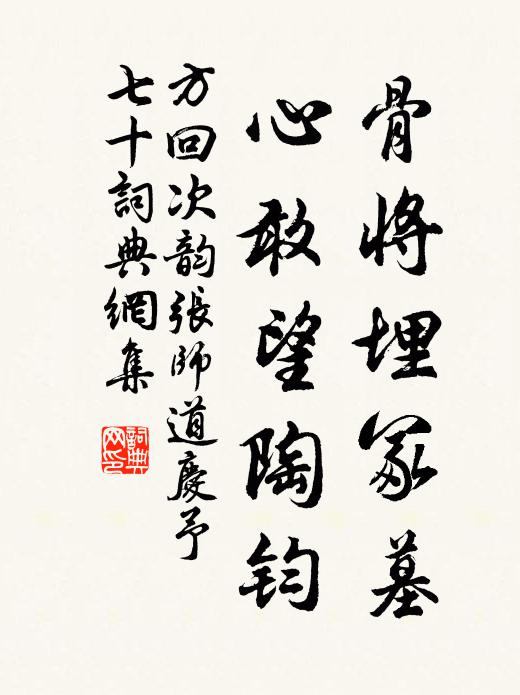 骨將埋冢墓
心敢望陶钧
方回次韵張師道慶予
七十詞典網集
詞典
网印